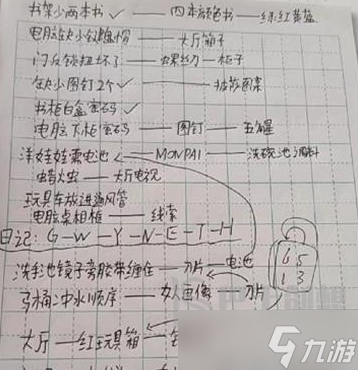 书架少两本书 ✓ — 四本颜色书 — 绿红黄蓝
电脑缺少键盘帽 — 大厅箱子
门反锁扭坏了 — 螺丝刀 — 柜子
缺少图钉2个 ✓ — 披萨图案
书柜白盒密码 ✓
电脑下柜密码 — 图钉 — 五角星
洋娃娃需电池 — MONPAI — 洗碗池
蜡火虫 — 大厅电视
玩具车放进通风管
电脑桌相框 — 线索
日记: G-W-Y-N-E-T-H
洗手池镜子旁胶带缠住 — 刀片 — 电池
6 5
1 3
马桶二中水顺序 — 女人画像 — 刀片
大厅 — 红玩具箱
九游